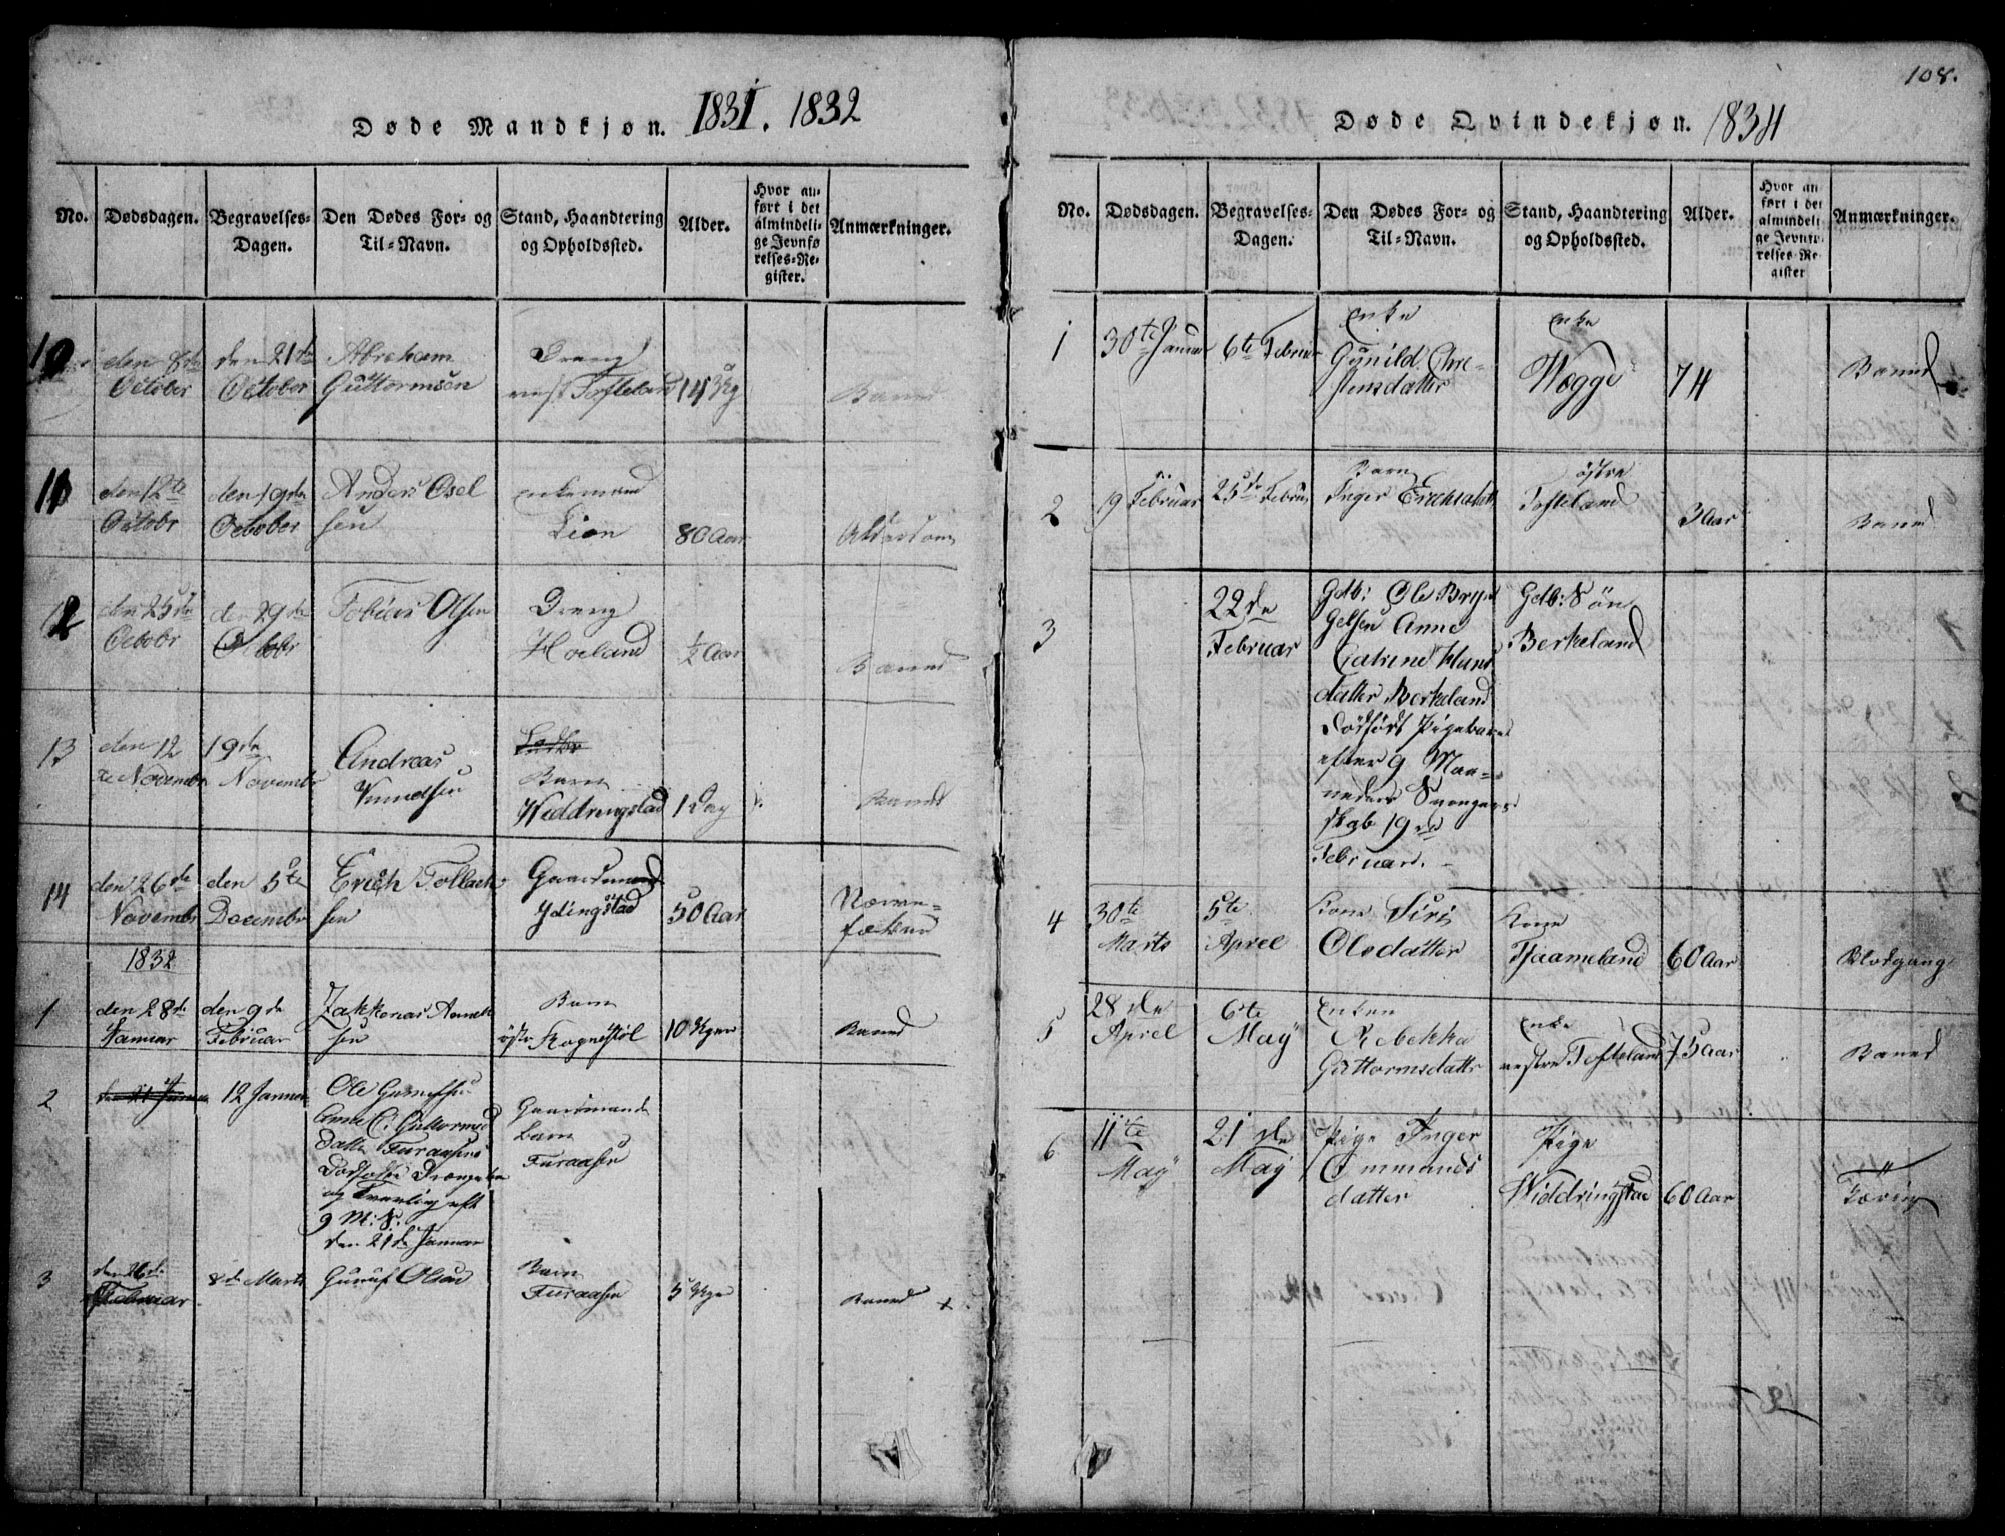 108.
Døde Mandkjøn. 1831. 1832
No.
Dødsdagen.
Begravelses-
Dagen.
Den Dødes For- og
Til-Navn.
Stand, Haandtering
og Opholdssted.
Alder.
Hvor an-
ført i det
almindeli-
ge Jevnfø
relses-Re-
gister.
Anmærkninger.
10
den 8de
October
den 21de
October
Abraham
Guttormsen
Dreng
Tofteland
Baand
11
den 12te
Octobr
den 19de
October
Anders Osel
sen
enkemand
Lian
80 Aar
12
den 25de
Octobr
den 29de
Octobr
Tobias Olsen
Dreng
Hoeland
½ Aar
Baand
13
den 12
te Novembr
19de
Novembr
Andreas
Barn
Widdringstad
1 Dag
Baand
14
den 26de
Novembr
den 5te
Decembr
Erich Tollach
sen
Gaardmand
Ydingstad
50 Aar
1832
1
den 28de
Januar
den 9de
Februar
Zakkarias
sen
Barn
östr Rognestöl
Baand
2
12 Januar
Ole
Anne C. Guttormsd
datter Furaasens
og Tvænling eft
9 M: S.
den 21de Januar
Gaardmands
barn
Furaasen
3
den 26de
Februar
8de Marts
Olsen
Barn
Furaasen
Baand +
Døde Qvindekjøn. 1834
No.
Dødsdagen.
Begravelses-
Dagen.
Den Dødes For- og
Til-Navn.
Stand, Haandtering
og Opholdssted.
Alder.
Hvor an
ført i det
almindeli
ge Jevnfø-
relses-Re
gister
Anmærkninger.
1
30te Januar
6te Februar
Enke
Gunild Chre-
stensdatter
Enke
Wegge
74
Baand
2
19 Februar
25de Februar
Barn
Inger Erichsdatt
östre
Tofteland
3 Aar
Baand
3
22de
Februar
Gdb: Ole Bryn
gelsen Anne
Catrine Hans
datter Berkeland
Dödfödt Pigebarn
efter 9 Maa-
neders Svanger
skab 19de
Februar.
Gdb: S ön
Berkeland
4
30te
Marts
5te
Aprel
Kone Siri
Olsdatter
Kone
Tjaameland
60 Aar
Blodgang
5
28de
Aprel
6te
May
Enken
Rebekka
Guttormsdattr
Enke
vestre Tofteland
75 Aar
Baand
6
11te
May
21de
May
Pige Inger
Ommunds
datter
Pige
Widdringstad
60 Aar
Tæring